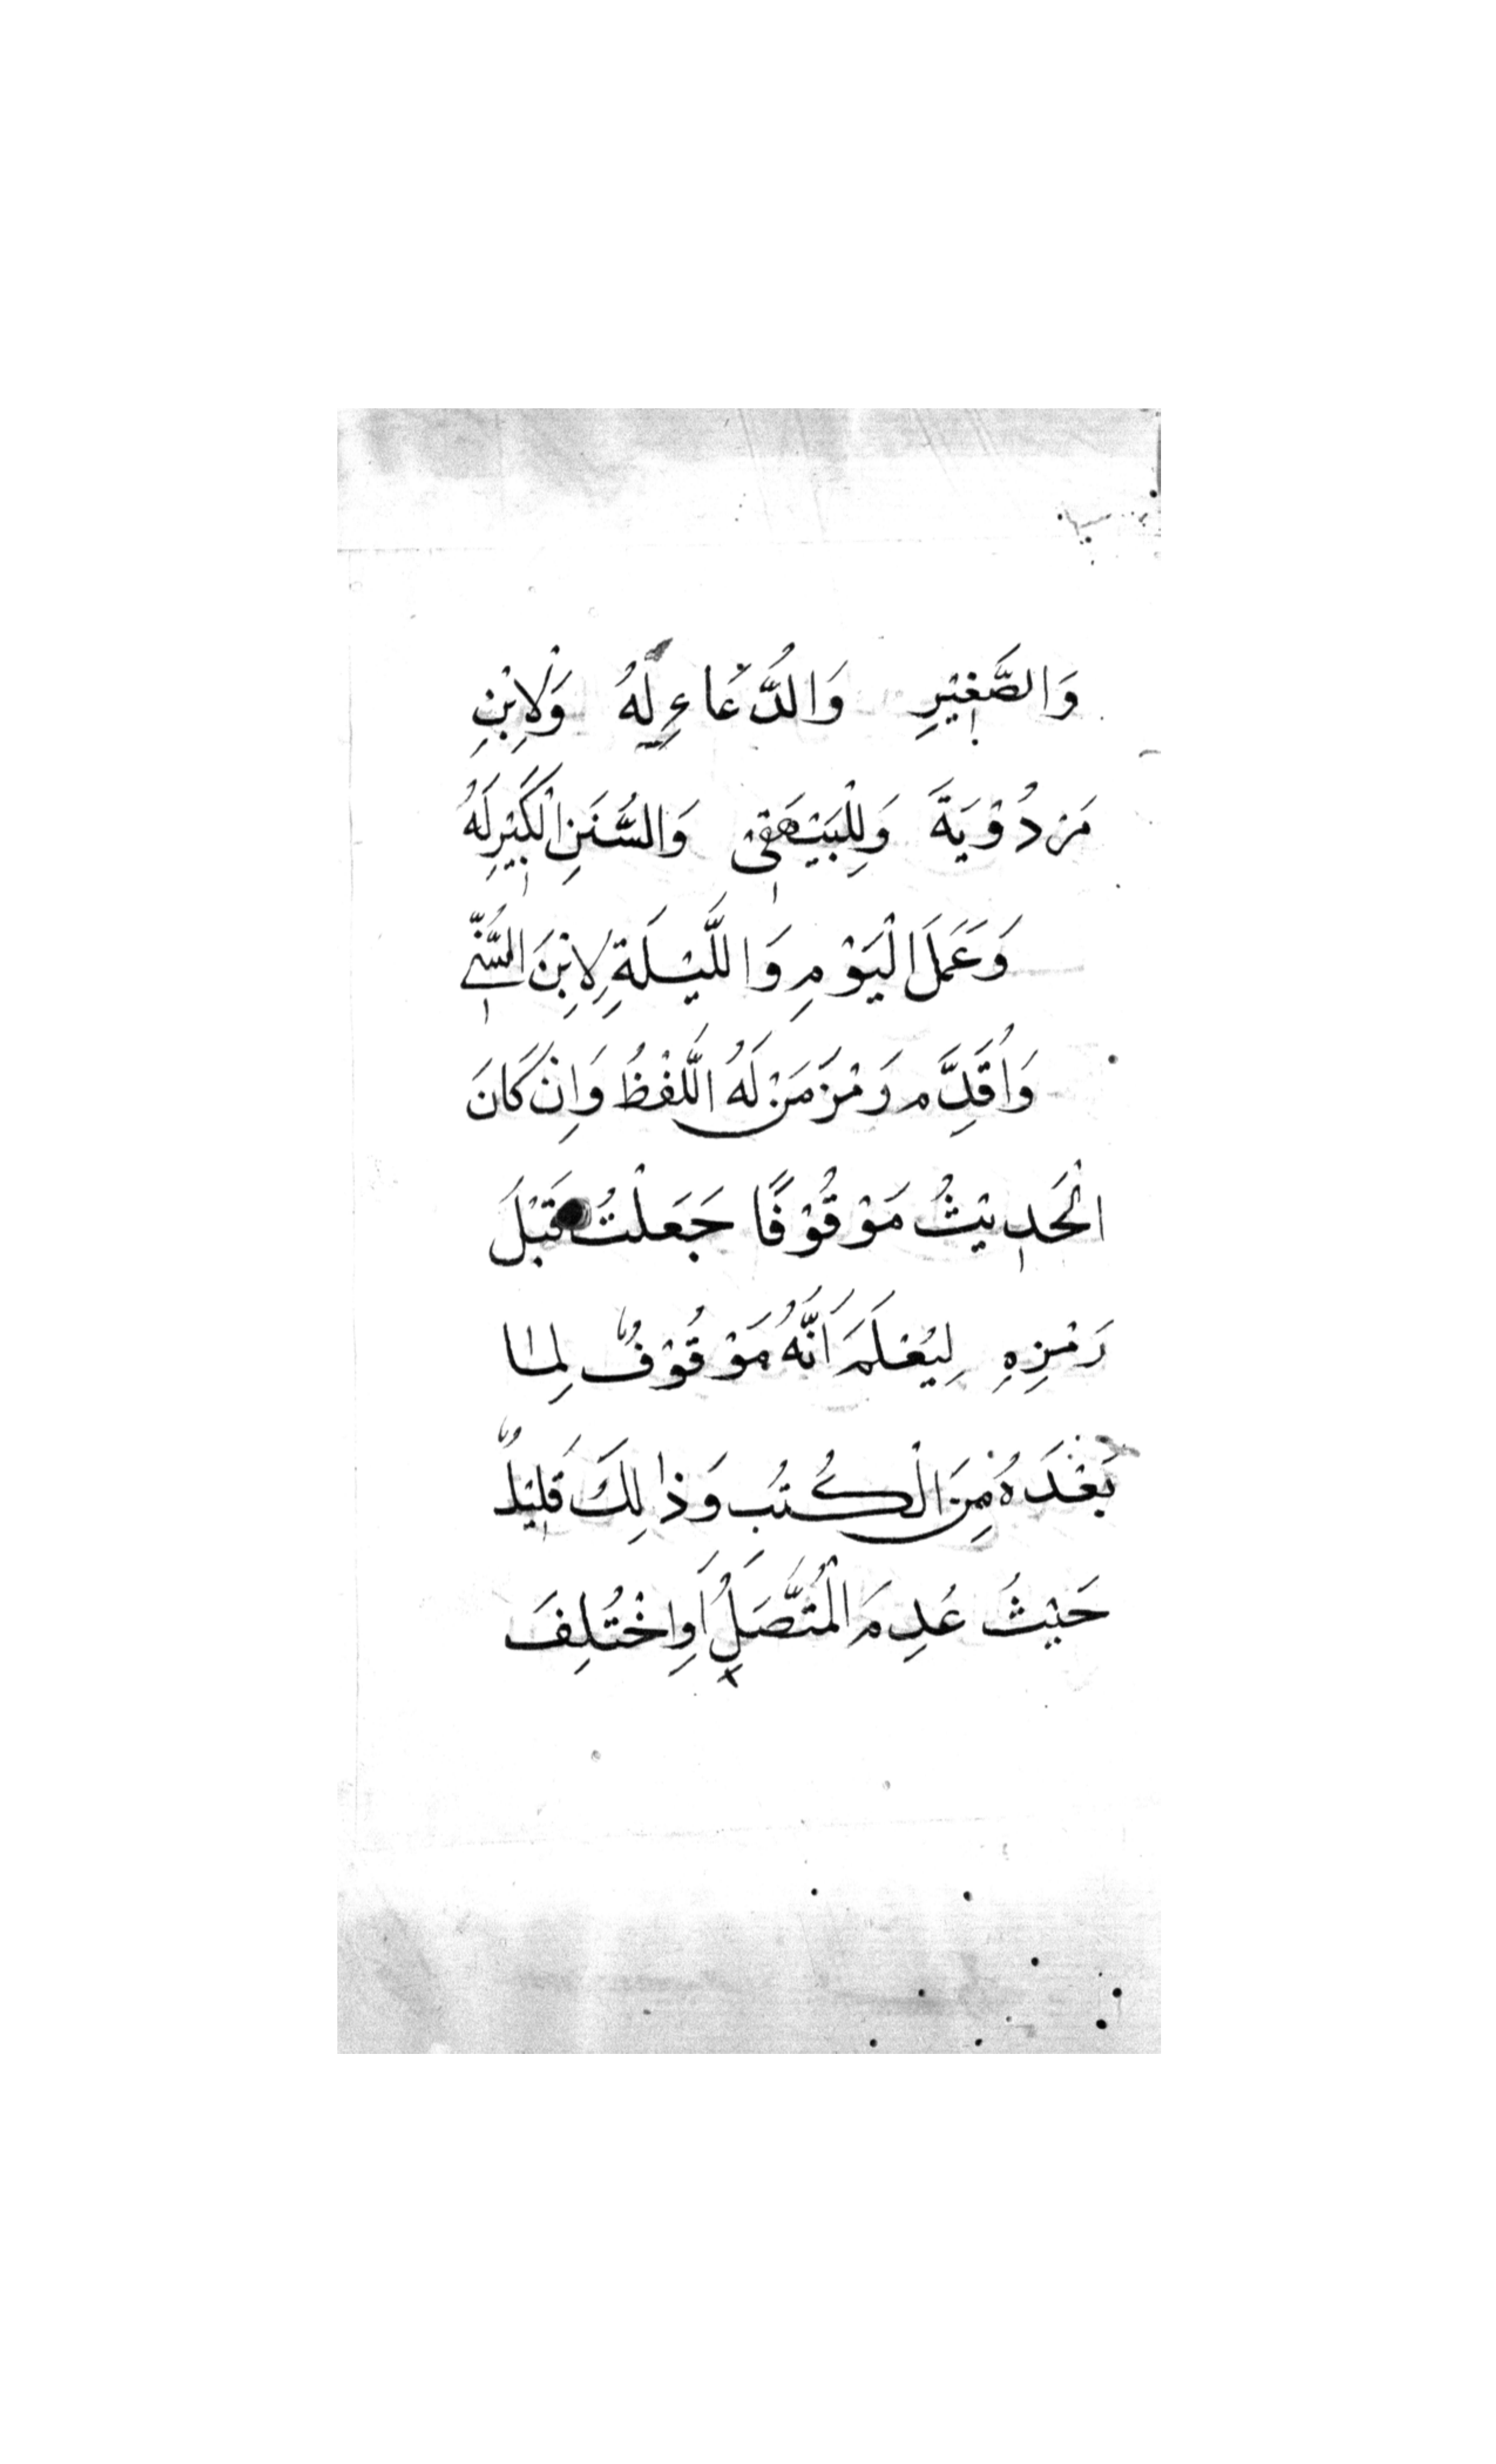 وَالصَّغِيْرِ وَالدُّعَاءِ لَهُ وَلِابْنِ
مَرْدُوْيَةَ وَلِلْبَيْهَقِىْ وَالسُّنَنِ الْكَبِيْرِ لَهُ
وَعَمَلَ الْيَوْمِ وَاللَّيْلَةِ لِابْنَ السُّنِّىْ
وَاُقَدِّمُ رَمْزَ مَنْ لَهُ اللَّفْظُ وَاِنْ كَانَ
الْحَدِيْثُ مَوْقُوْفًا جَعَلْتُ قَبْلَ
رَمْزِهِ لِيُعْلَمَ اَنَّهُ مَوْقُوْفٌ لِمَا
بَعْدَهُ مِنَ الْكُتُبِ وَذَالِكَ قَلِيْلٌ
حَيْثُ عُدِمَ الْمُتَّصَلُ اَوِ اخْتُلِفَ